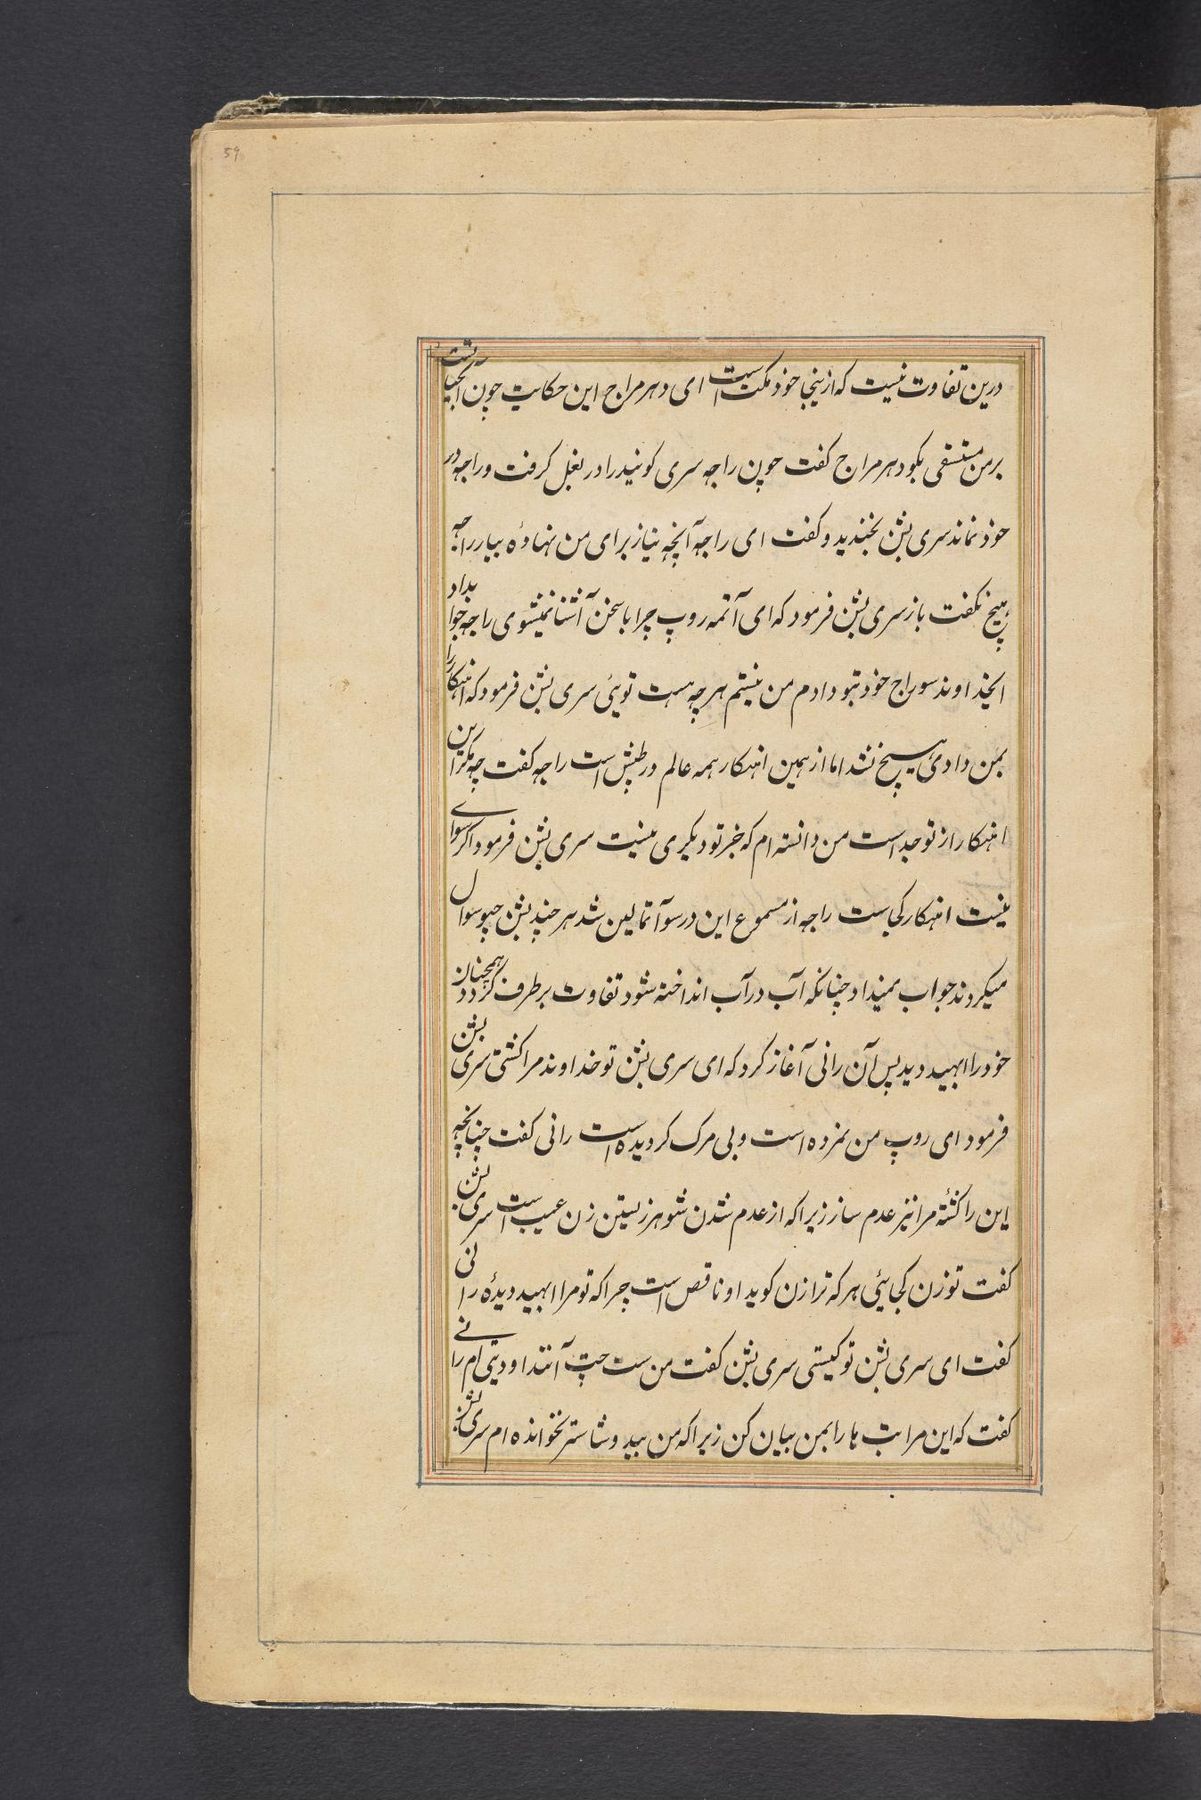 59
درین تفاوت نیست که ازینجا خود مکت است ای دهرمراج این حکایت چون آبحیات است
بر من مستسقی بکو دهرمراج کفت چون راجه سری کوبند را در بغل کرفت و راجه در
خود نماند سری بشن بخندید و کفت ای راجه آنچه نیاز برای من نهادهٔ بیار راجه
هیچ نکفت باز سری بشن فرمود که ای آتمه روپ چرا با سخن آشنا نمیشوی راجه جواب داد
ایخداوند سوراج خود بتو دادم من نیستم هرچه هست توئی سری بشن فرمود که اهنکار را
بمن دادی هیچ نشد اما از همین اهنکار همه عالم در طپش است راجه کفت چه مکر این
اهنکار از تو جداست من دانسته ام که خبر تو دیکری نیست سری بشن فرمود اکر سوای
نیست اهنکار کجاست راجه از مسموع این در سوآتما لین شد هر چند بشن جیو سوال
میکردند جواب نمیداد چنانکه آب در آب انداخته شود تفاوت برطرف کردد همچنان
خود را ابهید دید پس آن رانی آغاز کرد که ای سری بشن تو خداوند مرا کشتی سری بشن
فرمود ای روپ من نمرده است و بی مرک کردیده است رانی کفت چنانچه
این را کشتهٔ مرا نیز عدم ساز زیراکه از عدم شدن شوهر زیستن زن عیب است سری بشن
کفت تو زن کجائی هر که ترا زن کوید او ناقص است چراکه تو مرا ابهید دیدهٔ رانی
کفت ای سری بشن تو کیستی سری بشن کفت من ست چت آنند اودیتی ام رانی
کفت که این مراتب ها را بمن بیان کن زیراکه من بید و شاستر نخوانده ام سری بشن